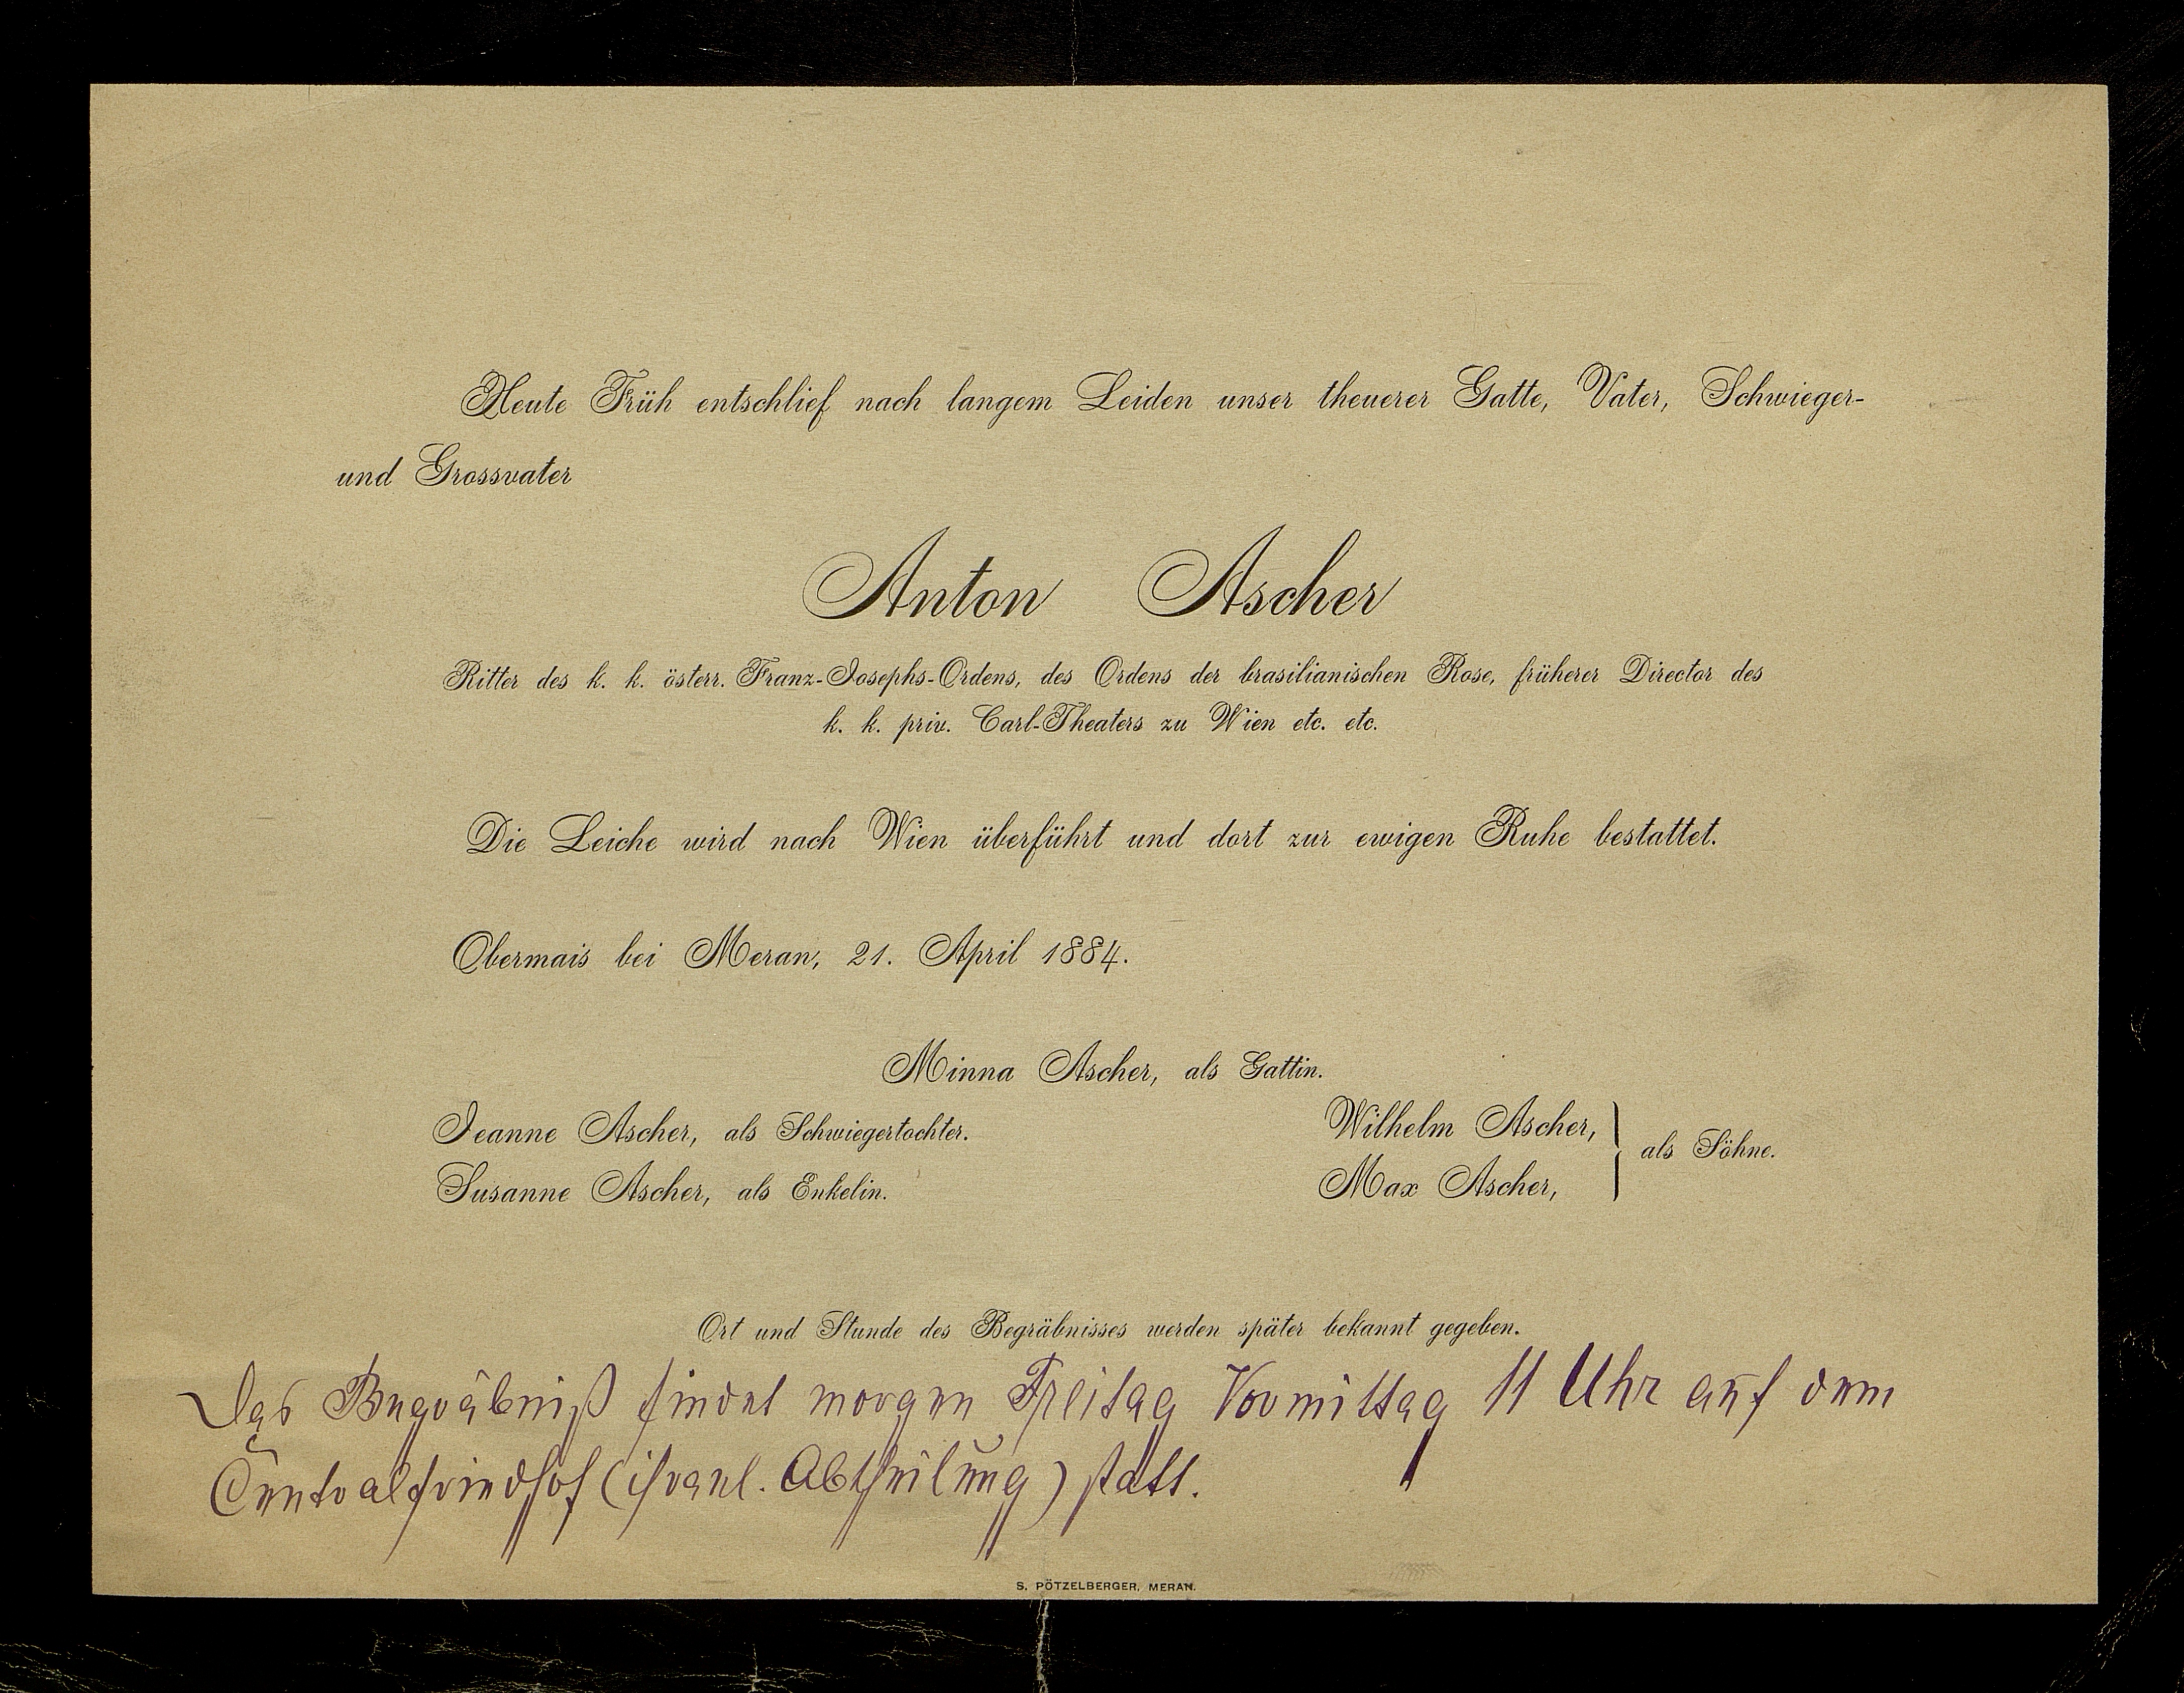 Heute Früh entschlief nach langem Leiden unser theuerer Gatte, Vater, Schwieger-
und Grossvater
Anton Ascher
Ritter des k. k. österr. Franz-Josephs-Ordens, des Ordens der brasilianischen Rose, früherer Director des
k. k. priv. Carl-Theaters zu Wien etc. etc.
Die Leiche wird nach Wien überführt und dort zur ewigen Ruhe bestattet.
Obermais bei Meran, 21. April 1884.
Minna Ascher, als Gattin.
Jeanne Ascher, als Schwiegertochter.
Susanne Ascher, als Enkelin.
Wilhelm Ascher,
Max Ascher,
als Söhne.
Ort und Stunde des Begräbnisses werden später bekannt gegeben.
Das Begräbniß findet morgen Freitag Vormittag 11 Uhr auf dem
Centralfriedhof (israel. Abtheilung) statt.
S. PÖTZELBERGER, MERAN.